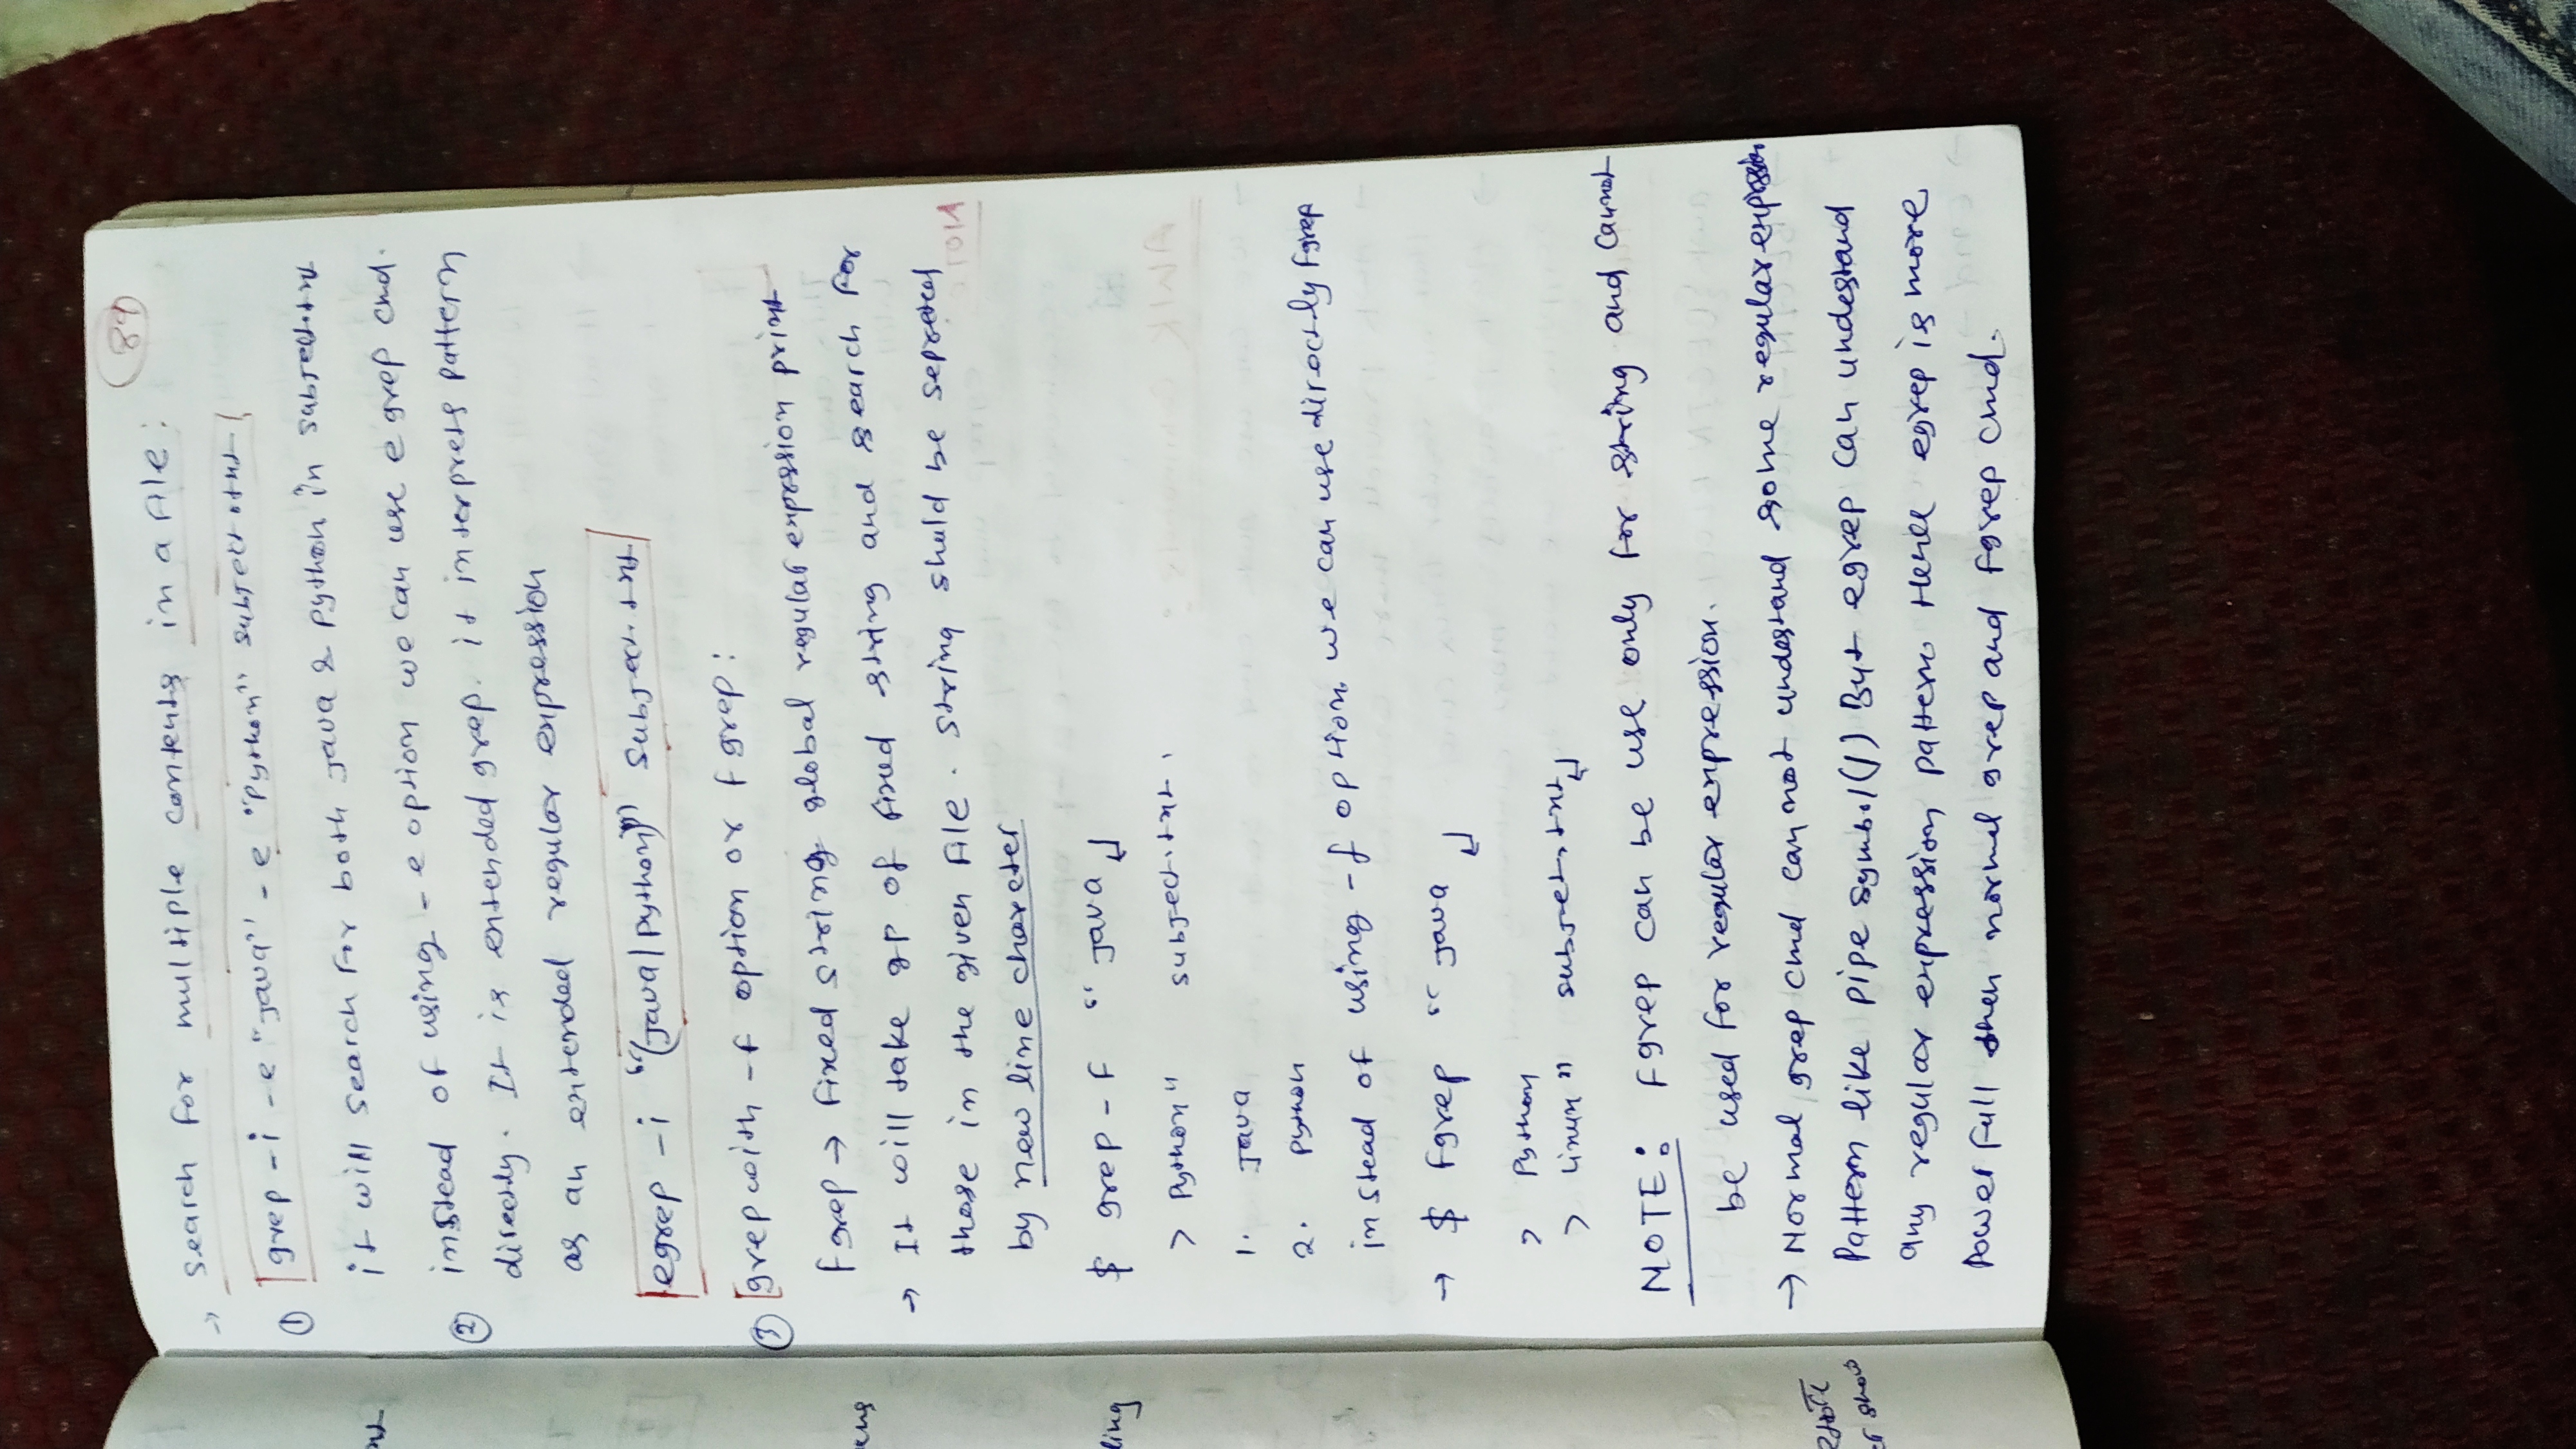 89
→ search for multiple contents in a file:
① grep -i -e "java" -e "Python" subject.txt
it will search for both java & python in subject.txt
② instead of using -e option we can use egrep cmd.
directly. It is extended grep. it interprets pattern
as an extended regular expression
egrep -i "(java|python)" subject.txt
③ grep with -f option or fgrep:
fgrep → fixed string global regular expression print
→ It will take gp of fixed string and search for
those in the given file. String shuld be sepreted
by new line chareter
$ grep -f "java ↵
> Python" subject.txt
1. java
2. python
instead of using -f option we can use directly fgrep
→ $ fgrep "java ↵
> Python
> Linux" subject.txt ↵
NOTE: fgrep can be use only for string and cannot
be used for regular expression.
→ Normal grep cmd can not undestand some regular expression
Pattern like pipe symbol(|) But egrep can undestand
any regular expression pattern. Hence egrep is more
Powerfull then normal grep and fgrep cmd.
ling
show